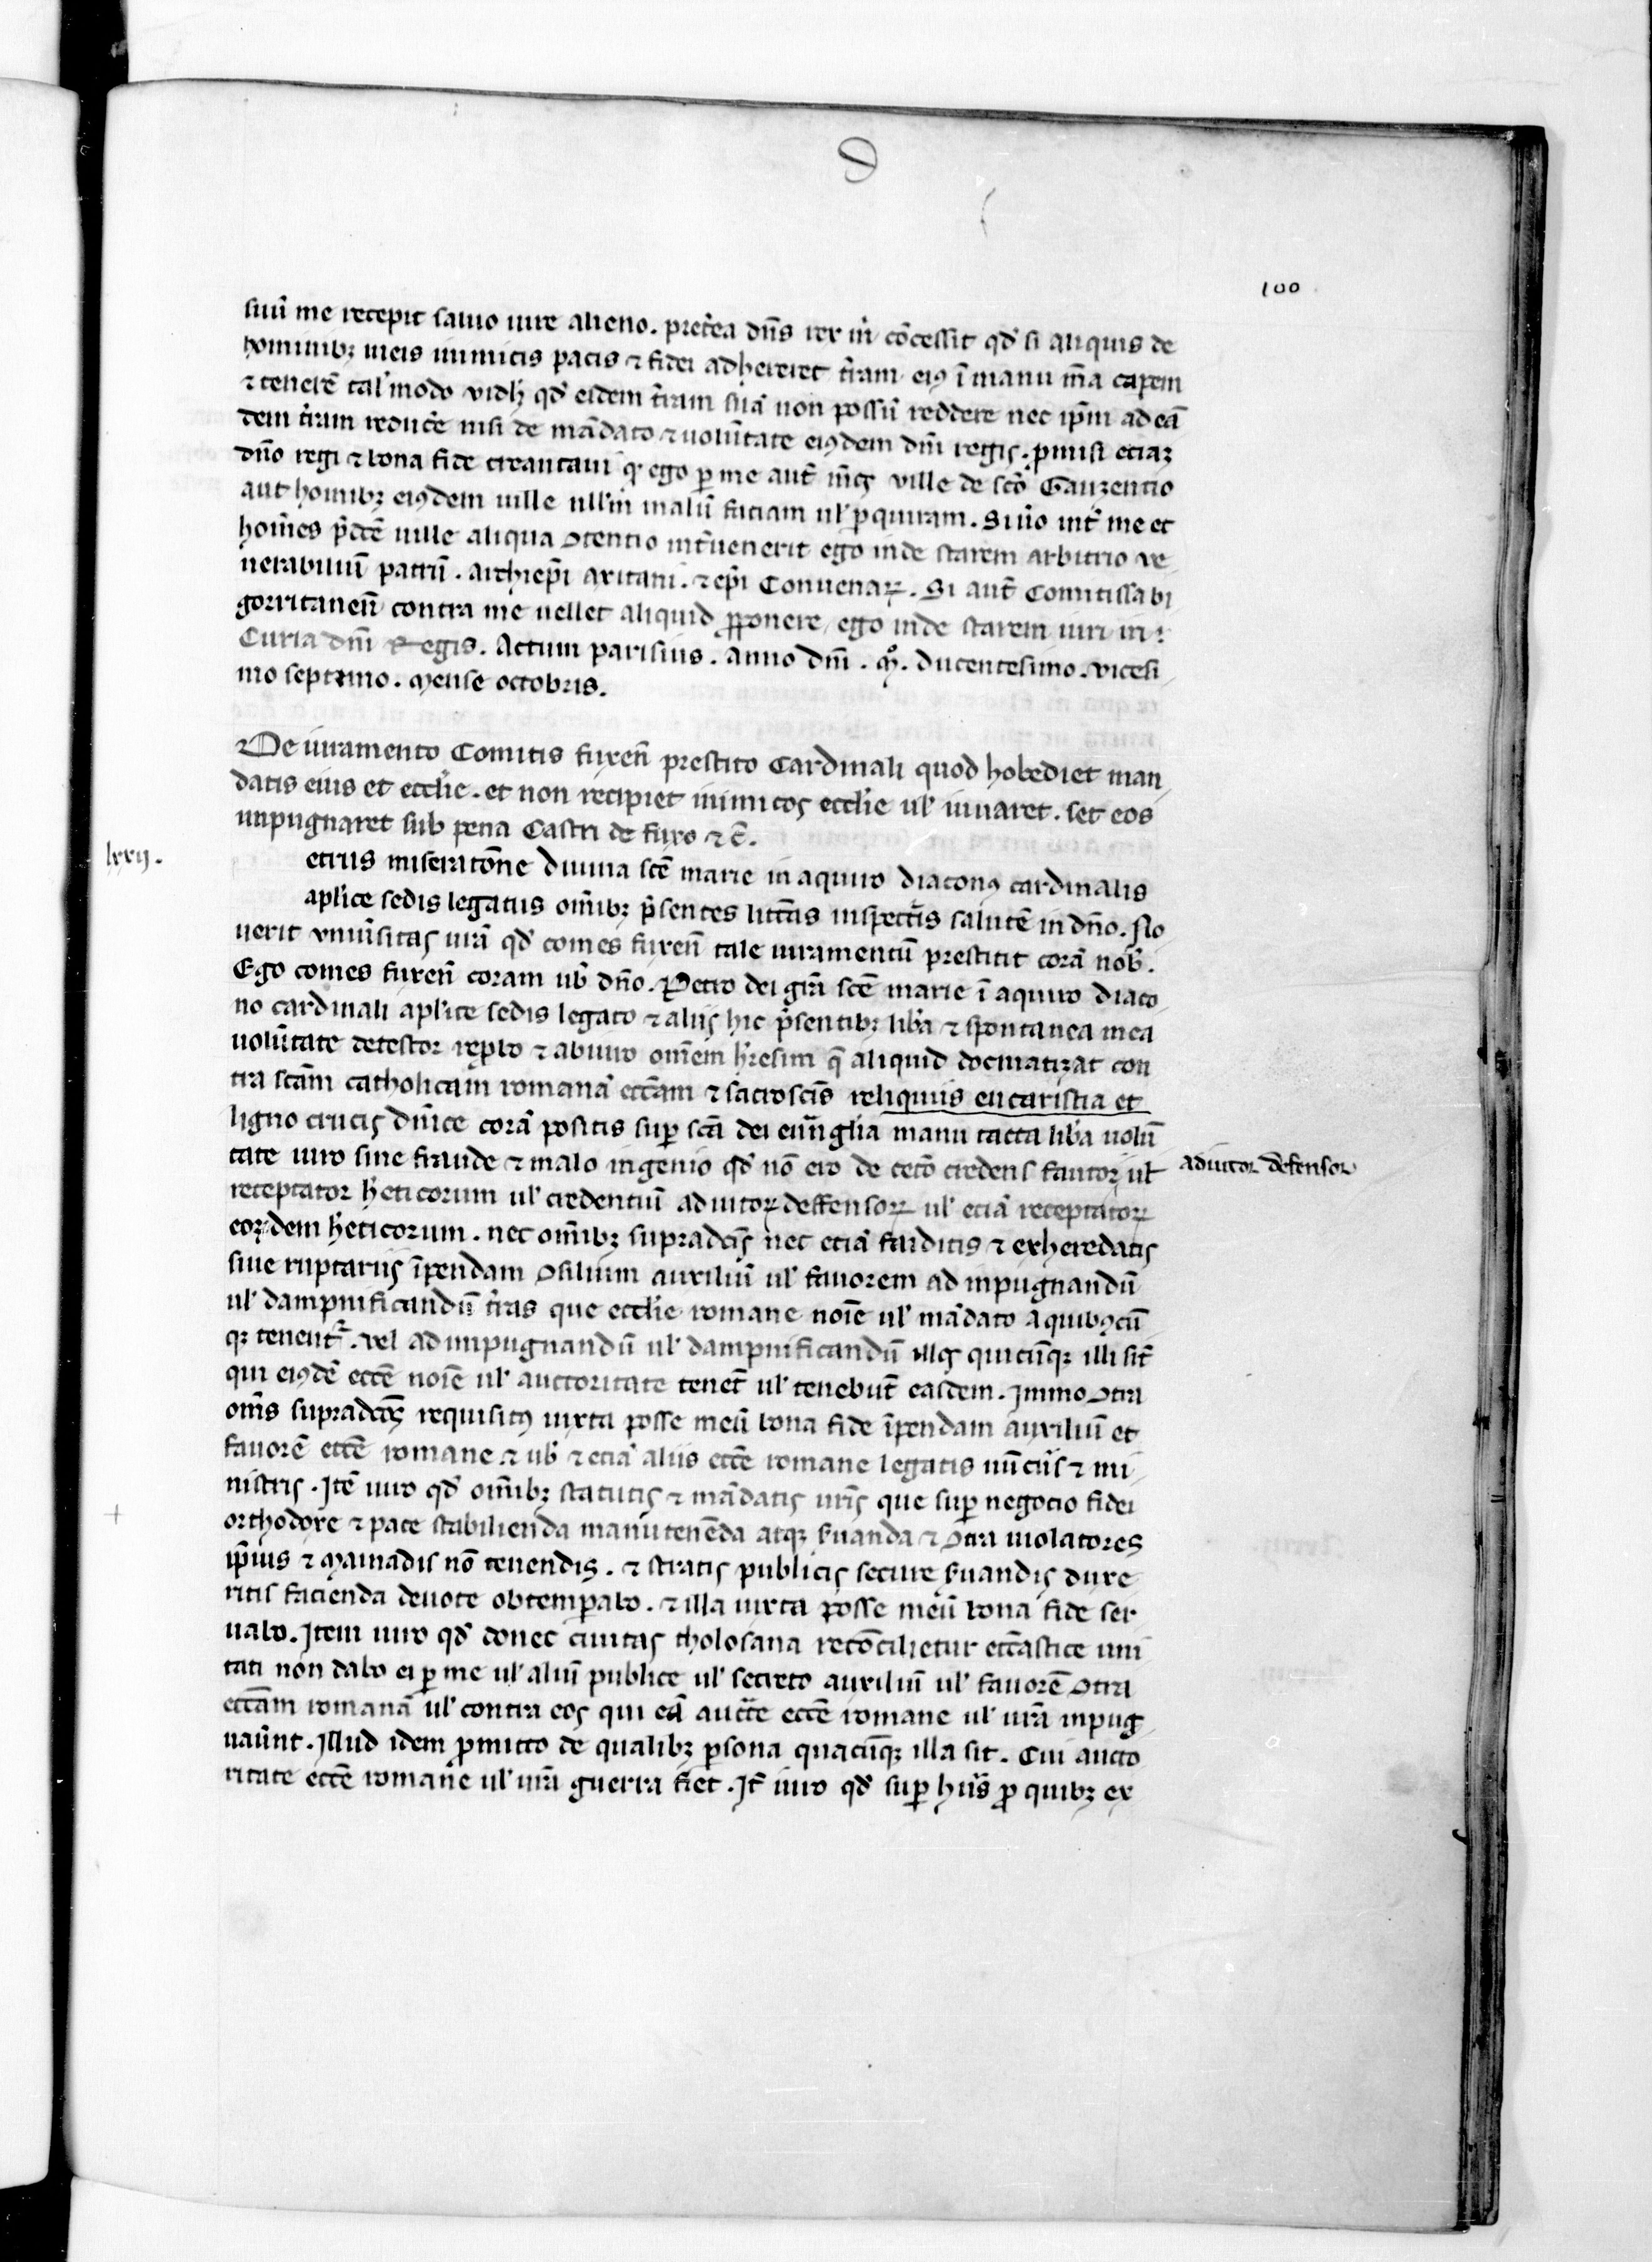 100
suũ me recepit saluo iure alieno. pret̃ea dñs rex m̃ cõcessit qđ si aliquis de
hominibꝫ meis inimicis pacis ⁊ fidei adhereret t̃ram eiꝰ ĩ manu m̃a capem
⁊ tenerẽ tal' modo vidlꝫ qđ eidem t̃ram suã non possũ reddere nec ip̃m ad eã
dem t̃ram reduc̃e nisi de mãdato ⁊ uolũtate eiꝰdem dñi regis. ꝓmisi eciaꝫ
dño regi ⁊ bona fide creantaui qꝫ ego ꝑ me aut̃ ville de sc̃o Gauzentio
aut homibꝫ eiꝰdem uille ull'm malũ faciam ul' ꝑquiram. Si ũo int̃ me et
hom̃es p̃dc̃e uille aliqua ꝯtentio int̃uenerit ego inde starem arbitrio ve
nerabiliũ patrũ. archiep̃i axitani. ⁊ ep̃i Conuenaꝝ. Si aut̃ Comitissa bi
gorritaneñ contra me uellet aliquid ꝓponere, ego inde starem iuri in
Curia dñi Regis. Actum parisius. Anno dñi. m̊. ducentesimo. vicesi
mo septimo. Mense octobris.
De iuramento Comitis fuxeñ prestito Cardinali quod hobediet man
datis eius et eccl'ie. et non recipiet inimicos eccl'ie ul' iuuaret. set eos
inpugnaret sub pena Castri de fuxo ⁊ c̃.
lxxij.
etrus miseratõne diuina sc̃e marie in aquiro diaconꝰ cardinalis
apl'ice sedis legatus om̃ibꝫ p̃sentes litt̃as inspect̃is salutẽ in dño. No
uerit vniũsitas ur̃a qđ comes fuxeñ tale iuramentũ prestitit corã nob̃.
Ego comes fuxeñ coram ub̃ dño. Petro dei gr̃a sc̃e marie ĩ aquiro diaco
no cardinali apl'ice sedis legato ⁊ aliis hic p̃sentibꝫ lib̃a ⁊ spontanea mea
uolũtate detestor rep̃bo ⁊ abiuro om̃em h̃esim q̃ aliquid docmatizat con
tra sc̃am catholicam romanã ecc̃am ⁊ sacrosc̃is reliquiis eucaristia et
ligno crucis dñice corã positis suꝑ sc̃a dei euñglia manu tacta lib̃a uolũ
tate iuro sine fraude ⁊ malo ingenio qđ nõ ero de cet̃o credens fautor ul'
adiutor defensor
receptator h̃eticorum ul' credentiũ adiutoꝝ deffensoꝝ ul' eciã receptatoꝝ
eoꝝdem h̃eticorum. nec om̃ibꝫ supradc̃is nec eciã faiditis ⁊ exheredatis
siue ruptariis ĩpendam ꝯsilium auxiliũ ul' fauorem ad inpugnandũ
ul' dampnificandũ t̃ras que eccl'ie romane noĩe ul' mãdato a quibꝰcũ
qꝫ tenent̃. vel ad inpugnandũ ul' dampnificandũ illos quicũqꝫ illi sĩt
qui eiꝰdẽ ecc̃e noĩe ul' auctoritate tenẽt ul' tenebũt easdem. Immo ꝯtra
om̃s supradc̃os requisitꝰ iuxta posse meũ bona fide ĩpendam auxiliũ et
fauorẽ ecc̃e romane ⁊ ub̃ ⁊ eciã aliis ecc̃e romane legatis nũciis ⁊ mi
nistris. Itẽ iuro qđ om̃ibꝫ statutis ⁊ mãdatis ur̃is que suꝑ negocio fidei
orthodoxe ⁊ pace stabilienda manutenẽda atqꝫ ẜuanda ⁊ ꝯtra uiolatores
ip̃ius ⁊ Mainadis nõ tenendis. ⁊ stratis publicis secure ẜuandis duxe
ritis facienda deuote obtemꝑabo. ⁊ illa iuxta posse meũ bona fide ser
uabo. Item iuro qđ donec ciuitas tholosana recõcilietur ecc̃astice uni
tati non dabo ei ꝑ me ul' aliũ publice ul' secreto auxiliũ ul' fauorẽ ꝯtra
ecc̃am romanã ul' contra eos qui eã auct̃te ecc̃e romane ul' ur̃a inpug
naũint. Illud idem ꝓmitto de qualibꝫ ꝑsona quacũqꝫ illa sit. Cui aucto
ritate ecc̃e romane ul' ur̃a guerra fiet. It̃ iuro qđ suꝑ hiis ꝓ quibꝫ ex